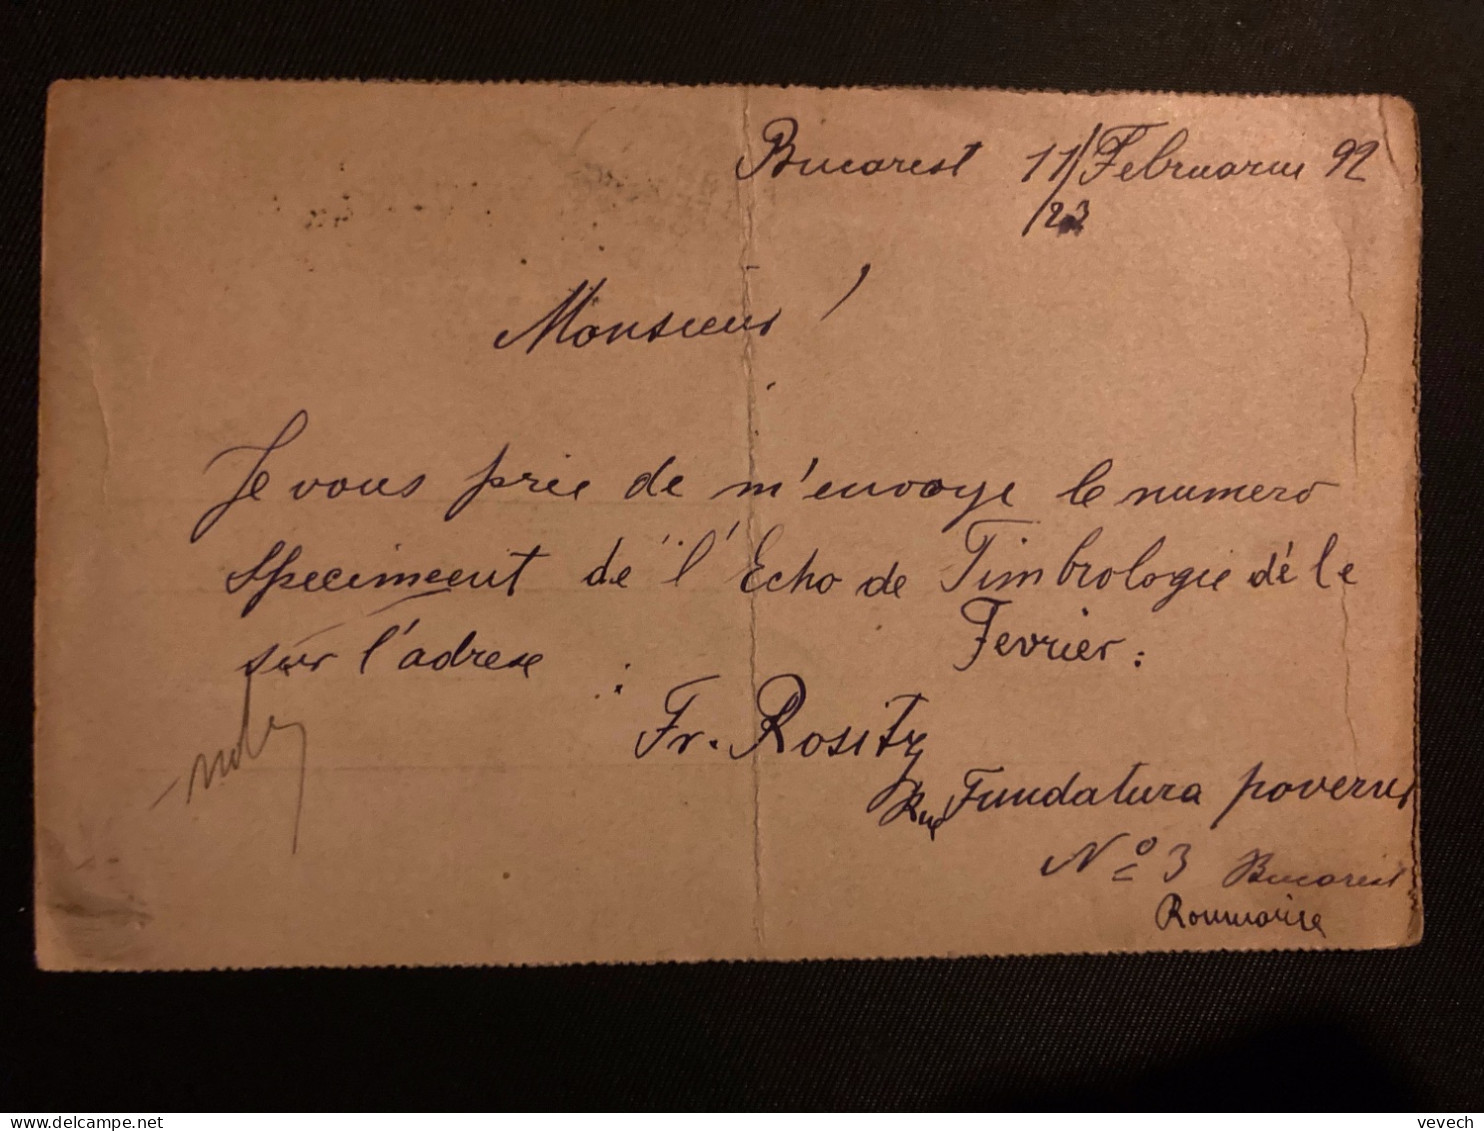 Bucarest 11/Februarie 92
/23
Monsieur!
Je vous prie de m'envoye le numero
Specimeent de "l'Echo de Timbrologie dé le
Fevrier:
sur l'adrese :
Fr. Rositz
Rue Fundatura poverne
Nº 3 Bucarest
Roumanie
vevech